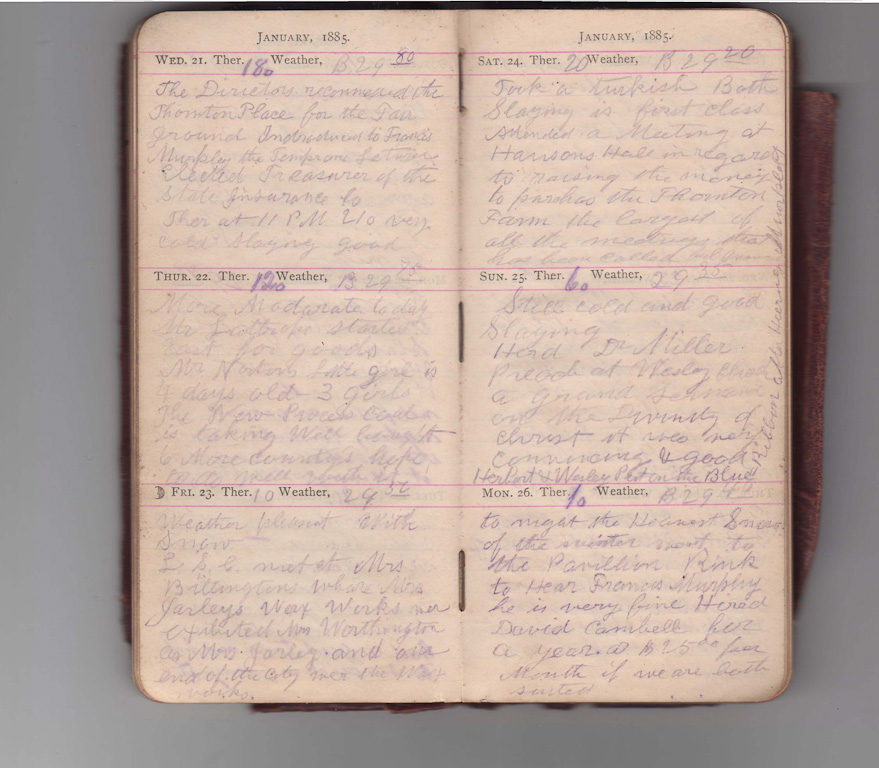 JANUARY, 1885.
WED. 21. Ther. 180 Weather, B 29 80
The Directors recommend the
Thornton Place for the Fair
ground Indroduced to Francis
Murphy the Temprance Letturer
Elected Treasurer of the
State Insurance Co
Ther at 11 P.M. 210 very
cold Slaying good
THUR. 22. Ther. 120 Weather, B 29 75
More Modarate today
Mr started
East for goods
Mr Nortons Little girl is
4 days old - 3 girls
The New Process
is taking Well bought
6 More countys
FRI. 23. Ther. 10 Weather, 29 50
Weather pleasant With
Snow
L. S. C. met at Mrs
Billingtons Whare Mrs
Jarleys Wax Works wer
exibited Mrs Worthington
as Mrs. Jarley and
end of the city wer the Wax
works.
JANUARY, 1885.
SAT. 24. Ther. 20 Weather, B 29 20
Took a turkish Bath
Slaying is first class
Attended a Meeting at
Hansons Hall in regard
to raising the money
to purchas the Thornton
Farm the largest of
all the meetings that
has been called
SUN. 25. Ther. 60 Weather, 29 35
Still cold and good
Slaying
Herd Dr Miller
Preach at Wesley
a grand Sermon
on the Divinity of
Christ it was very
Convincing & good
Herbert & Wesley Put on the Blue
Ribbon after Hearing Murphey
MON. 26. Ther. 10 Weather, B 29
to night the Heavest Snow
of the winter went to
the Pavillion Rink
to Hear Francis Murphy
he is very fine Hired
David Cambell for
a year @ $25 00 per
Month if we are both
suited